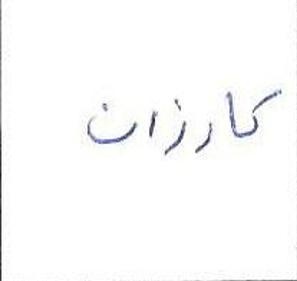 کارزان